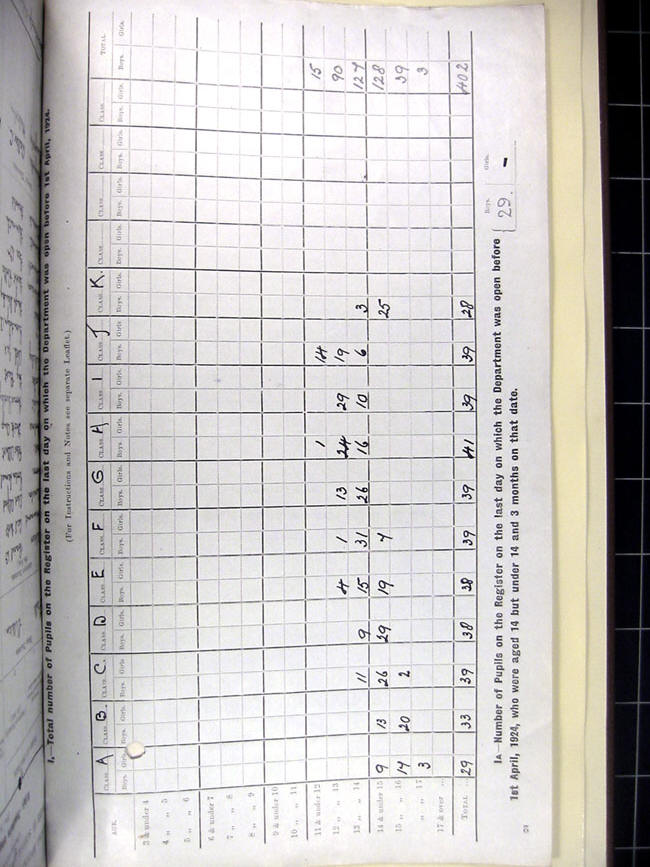 I.—Total number of Pupils on the Register on the last day on which the Department was open before 1st April, 1924.
(For Instructions and Notes see separate Leaflet.)
AGE. CLASS A CLASS B. CLASS C. CLASS D CLASS E CLASS F CLASS G CLASS H CLASS I CLASS J CLASS K. CLASS CLASS CLASS CLASS TOTAL
Boys. Girls. Boys. Girls. Boys. Girls. Boys. Girls. Boys. Girls. Boys. Girls. Boys. Girls. Boys. Girls. Boys. Girls. Boys. Girls. Boys. Girls. Boys. Girls. Boys. Girls. Boys. Girls. Boys. Girls. Boys. Girls.
3 & under 4
4 „ „ 5
5 „ „ 6
6 & under 7
7 „ „ 8
8 „ „ 9
9 & under 10
10 „ „ 11
11 & under 12 1 14 15
12 „ „ 13 4 1 13 24 29 19 90
13 „ „ 14 11 9 15 31 26 16 10 6 3 127
14 & under 15 9 13 26 29 19 7 25 128
15 „ „ 16 17 20 2 39
„ „ 17 3 3
17 & over
TOTAL 29 33 39 38 38 39 39 41 39 39 28 402
IA—Number of Pupils on the Register on the last day on which the Department was open before
1st April, 1924, who were aged 14 but under 14 and 3 months on that date.
Boys. Girls.
29. -